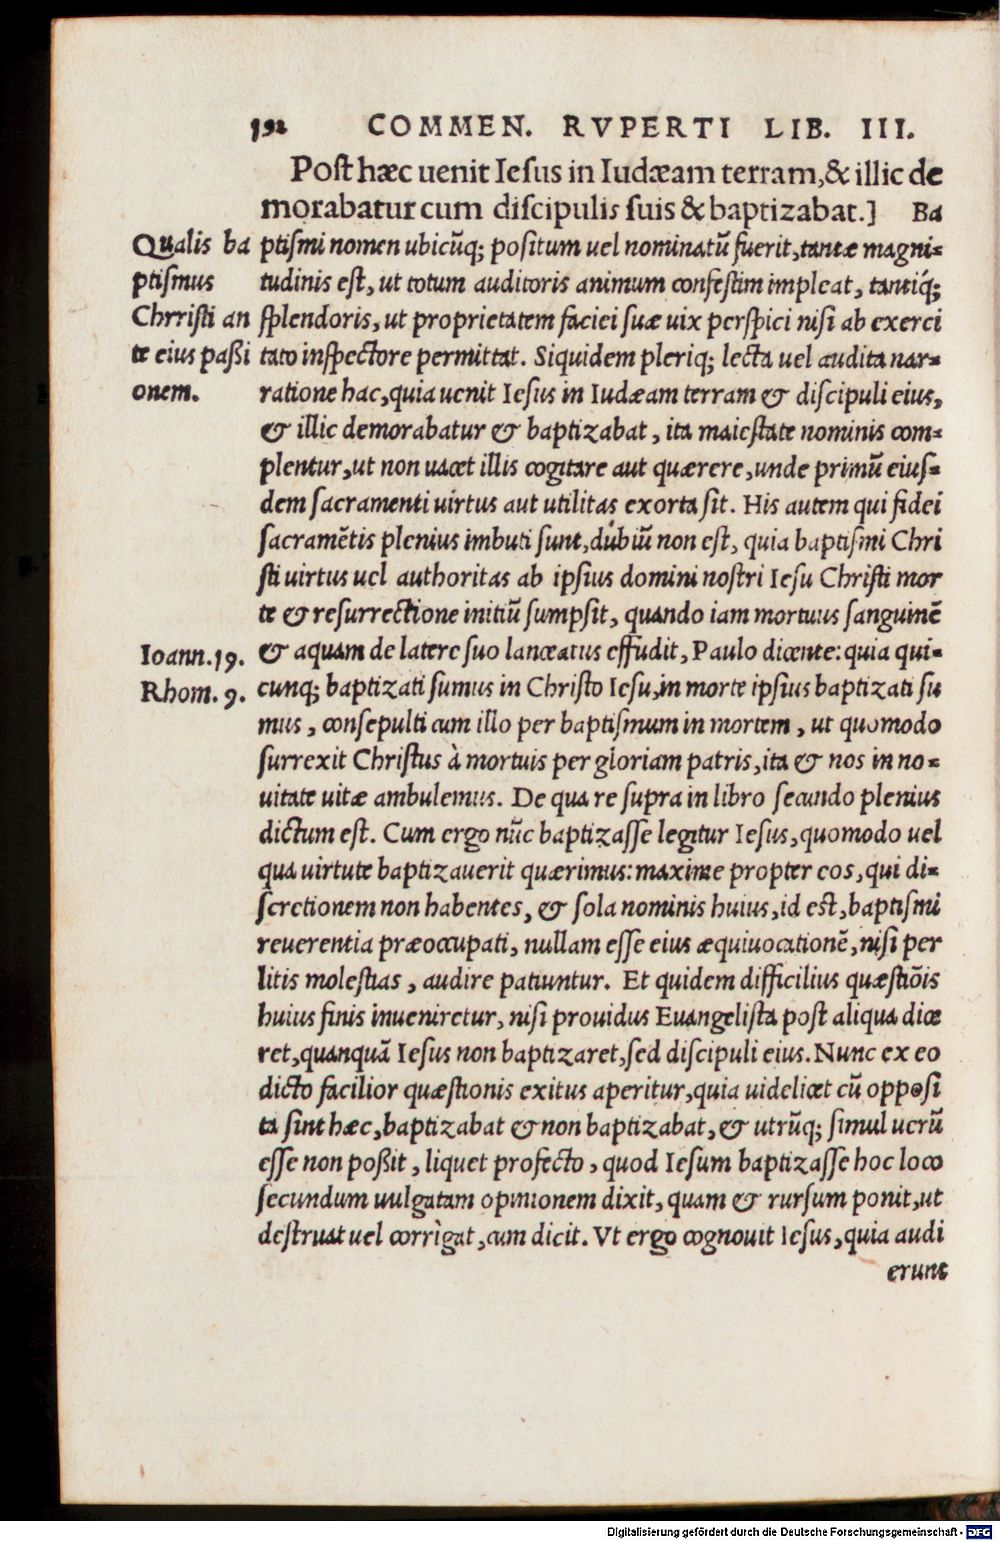 192 COMMEN. RVPERTI LIB. III.
Post hæc uenit Iesus in Iudæam terram, & illic de
morabatur cum discipulis suis & baptizabat.] Ba
Qualis ba
ptismus
Chrristi an
te eius paßi
onem.
ptismi nomen ubicũq; positum uel nominatũ fuerit, tantæ magni-
tudinis est, ut totum auditoris animum confestim impleat, tantiq́;
splendoris, ut proprietatem faciei suæ uix perspici nisi ab exerci
tato inspectore permittat. Siquidem pleriq; lecta uel audita nar-
ratione hac, quia uenit Iesus in Iudæam terram & discipuli eius,
& illic demorabatur & baptizabat, ita maiestate nominis com-
plentur, ut non uacet illis cogitare aut quærere, unde primũ eius-
dem sacramenti uirtus aut utilitas exorta sit. His autem qui fidei
sacramẽtis plenius imbuti sunt, dubiũ non est, quia baptismi Chri
sti uirtus uel authoritas ab ipsius domini nostri Iesu Christi mor
te & resurrectione initiũ sumpsit, quando iam mortuus sanguinẽ
Ioann.19.
Rhom. 9.
& aquam de latere suo lanceatus effudit, Paulo dicente: quia qui-
cunq; baptizati sumus in Christo Iesu, in morte ipsius baptizati su
mus, consepulti cum illo per baptismum in mortem, ut quomodo
surrexit Christus à mortuis per gloriam patris, ita & nos in no-
uitate uitæ ambulemus. De qua re supra in libro secundo plenius
dictum est. Cum ergo nũc baptizasse legitur Iesus, quomodo uel
qua uirtute baptizauerit quærimus: maxime propter eos, qui di-
scretionem non habentes, & sola nominis huius, id est, baptismi
reuerentia præoccupati, nullam esse eius æquiuocationẽ, nisi per
litis molestias, audire patiuntur. Et quidem difficilius quæstiõis
huius finis inueniretur, nisi prouidus Euangelista post aliqua dice
ret, quanquã Iesus non baptizaret, sed discipuli eius. Nunc ex eo
dicto facilior quæstionis exitus aperitur, quia uidelicet cũ opposi
ta sint hæc, baptizabat & non baptizabat, & utrũq; simul uerũ
esse non poßit, liquet profecto, quod Iesum baptizasse hoc loco
secundum uulgatam opinionem dixit, quam & rursum ponit, ut
destruat uel corrìgat, cum dicit. Vt ergo cognouit Iesus, quia audi
erunt
Digitalisierung gefördert durch die Deutsche Forschungsgemeinschaft - DFG